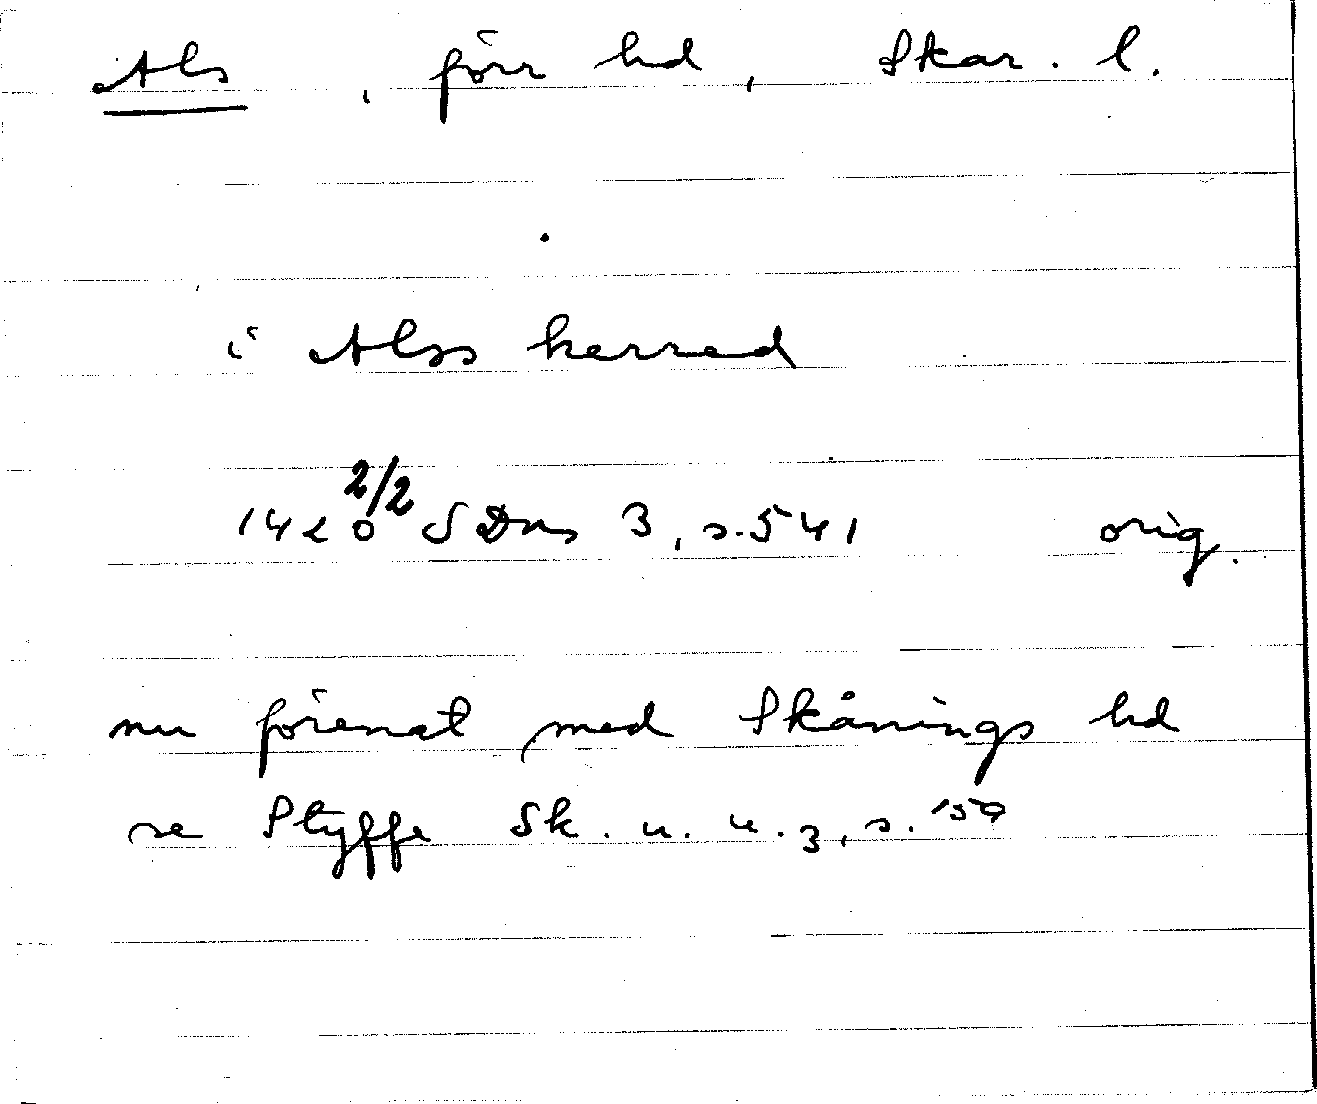 Als, förr hd, Skar. l.
i Alss herred
1420 2/2 SDns 3, s. 541 orig.
nu förenat med Skånings hd
se Styffe Sk. u. u. 3, s. 159